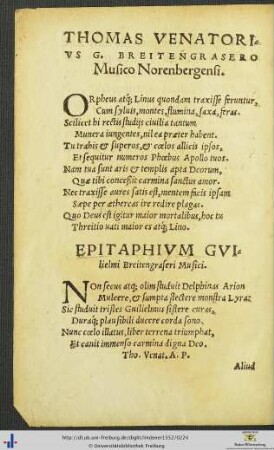 THOMAS VENATORI-
VS G. BREITENGRASERO
Musico Norenbergensi.
ORpheus atq; Linus quondam traxisse feruntur,
Cum syluis, montes, flumina, saxa, feras.
Scilicet hi rectis studijs ciuilia tantum
Munera iungentes, nil ea præter habent.
Tu trahis & superos, & cœlos allicis ipsos,
Et sequitur numeros Phœbus Apollo tuos.
Nam tua sunt aris & templis apta Deorum,
Quæ tibi concessit carmina sanctus amor.
Nec traxisse aures satis est, mentem facis ipsam
Sæpe per æthereas ire redire plagas.
Quo Deus est igitur maior mortalibus, hoc tu
Threitio uati maior es atq; Lino.
EPITAPHIVM GVI-
lielmi Breitengraseri Musici.
NOn secus atq; olim studuit Delphinas Arion
Mulcere, & sumpta flectere monstra Lyra:
Sic studuit tristes Guilielmus sistere curas,
Duraq; plausibili ducere corda sono.
Nunc cœlo illatus, liber terrena triumphat,
Et canit immenso carmina digna Deo.
Tho. Venat. A. P.
Aliud
http://dl.ub.uni-freiburg.de/diglit/maierer1552/0224
© Universitätsbibliothek Freiburg